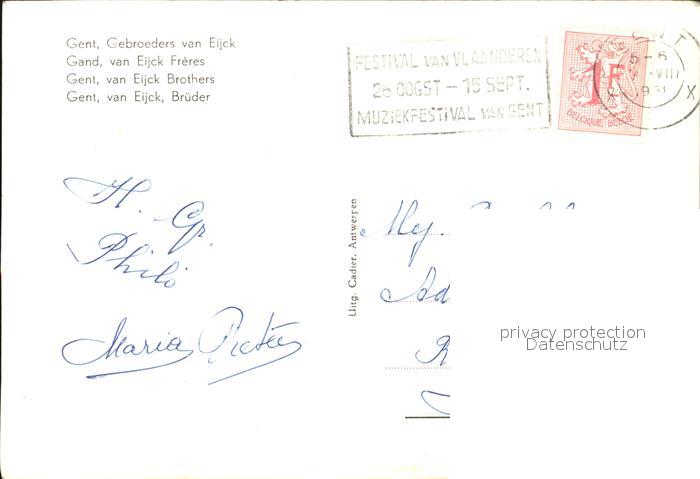 Gent, Gebroeders van Eijck
Gand, van Eijck Frères
Gent, van Eijck Brothers
Gent, van Eijck, Brüder
FESTIVAL VAN VLAANDEREN
26 OOGST – 15 SEPT.
MUZIEKFESTIVAL VAN GENT
1F
BELGIQUE-BELGIE
H. Gr.
Philo
Maria Pieters
Uitg. Cadier, Antwerpen
Mej.
Ad
privacy protection
Datenschutz